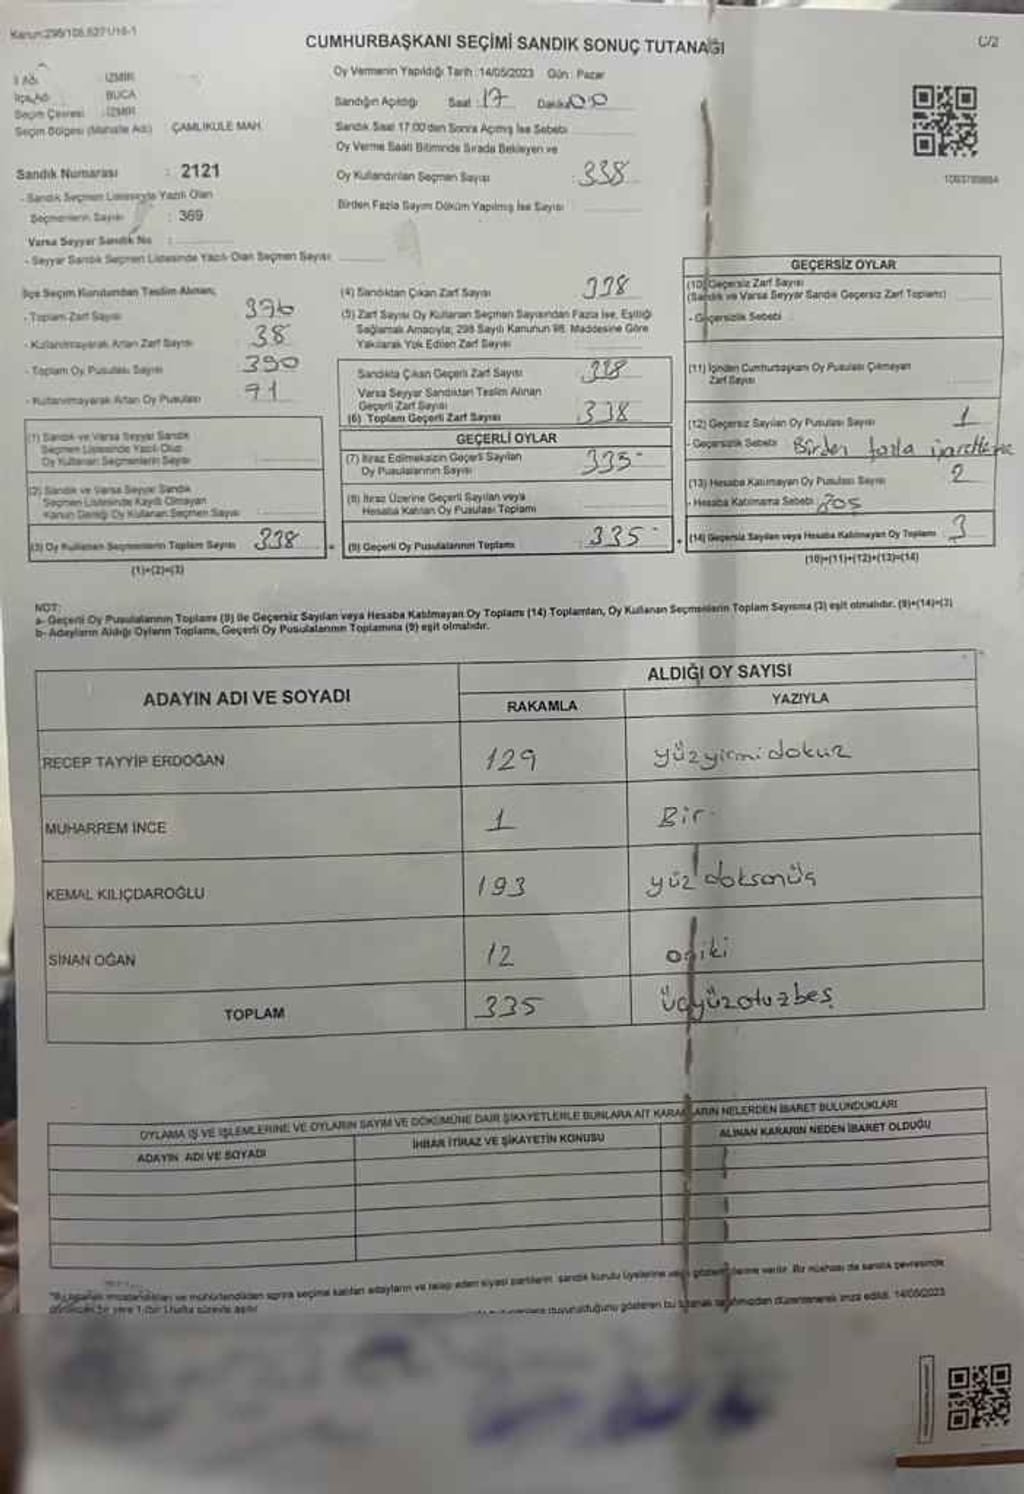 Kanun:298/108,6271/16-1
CUMHURBAŞKANI SEÇİMİ SANDIK SONUÇ TUTANAĞI
C/2
İl Adı : İZMİR
İlçe Adı : BUCA
Seçim Çevresi : İZMİR
Seçim Bölgesi (Mahalle Adı) : ÇAMLIKULE MAH.
Sandık Numarası : 2121
- Sandık Seçmen Listesinde Yazılı Olan
Seçmenlerin Sayısı : 369
Varsa Seyyar Sandık No :
- Seyyar Sandık Seçmen Listesinde Yazılı Olan Seçmen Sayısı
Oy Vermenin Yapıldığı Tarih : 14/05/2023 Gün : Pazar
Sandığın Açıldığı Saat 17 Dakika 00
Sandık Saat 17:00'den Sonra Açılmış İse Sebebi
Oy Verme Saati Bitiminde Sırada Bekleyen ve
Oy Kullandırılan Seçmen Sayısı 338
Birden Fazla Sayım Döküm Yapılmış İse Sayısı
İlçe Seçim Kurulundan Teslim Alınan;
- Toplam Zarf Sayısı 376
- Kullanılmayarak Artan Zarf Sayısı 38
- Toplam Oy Pusulası Sayısı 390
- Kullanılmayarak Artan Oy Pusulası 71
(1) Sandık ve Varsa Seyyar Sandık
Seçmen Listesinde Yazılı Olup
Oy Kullanan Seçmenlerin Sayısı
(2) Sandık ve Varsa Seyyar Sandık
Seçmen Listesinde Kaydı Olmayan
Kanun Gereği Oy Kullanan Seçmen Sayısı
(3) Oy Kullanan Seçmenlerin Toplam Sayısı 338
(1)+(2)=(3)
(4) Sandıktan Çıkan Zarf Sayısı 338
(5) Zarf Sayısı Oy Kullanan Seçmen Sayısından Fazla İse, Eşitliği
Sağlamak Amacıyla; 298 Sayılı Kanunun 98. Maddesine Göre
Yakılarak Yok Edilen Zarf Sayısı
Sandıkta Çıkan Geçerli Zarf Sayısı 338
Varsa Seyyar Sandıktan Teslim Alınan
Geçerli Zarf Sayısı
(6) Toplam Geçerli Zarf Sayısı 338
GEÇERLİ OYLAR
(7) İtiraz Edilmeksizin Geçerli Sayılan
Oy Pusulalarının Sayısı 335
(8) İtiraz Üzerine Geçerli Sayılan veya
Hesaba Katılan Oy Pusulası Toplamı
(9) Geçerli Oy Pusulalarının Toplamı 335
GEÇERSİZ OYLAR
(10) Geçersiz Zarf Sayısı
(Sandık ve Varsa Seyyar Sandık Geçersiz Zarf Toplamı)
- Geçersizlik Sebebi
(11) İçinden Cumhurbaşkanı Oy Pusulası Çıkmayan
Zarf Sayısı
(12) Geçersiz Sayılan Oy Pusulası Sayısı 1
- Geçersizlik Sebebi Birden fazla işaretleme
(13) Hesaba Katılmayan Oy Pusulası Sayısı 2
- Hesaba Katılmama Sebebi
(14) Geçersiz Sayılan veya Hesaba Katılmayan Oy Toplamı 3
(10)+(11)+(12)+(13)=(14)
NOT:
a- Geçerli Oy Pusulalarının Toplamı (9) ile Geçersiz Sayılan veya Hesaba Katılmayan Oy Toplamı (14) Toplamları, Oy Kullanan Seçmenlerin Toplam Sayısına (3) eşit olmalıdır. (9)+(14)=(3)
b- Adayların Aldığı Oyların Toplamı, Geçerli Oy Pusulalarının Toplamına (9) eşit olmalıdır.
ADAYIN ADI VE SOYADI
ALDIĞI OY SAYISI
RAKAMLA YAZIYLA
RECEP TAYYİP ERDOĞAN 129 yüzyirmidokuz
MUHARREM İNCE 1 Bir
KEMAL KILIÇDAROĞLU 193 yüz doksanüç
SİNAN OĞAN 12 oniki
TOPLAM 335 üçyüzotuzbeş
OYLAMA İŞ VE İŞLEMLERİNE VE OYLARIN SAYIM VE DÖKÜMÜNE DAİR ŞİKAYETLERLE BUNLARA AİT KARARLARIN NELERDEN İBARET BULUNDUKLARI
ADAYIN ADI VE SOYADI
İHBAR İTİRAZ VE ŞİKAYETİN KONUSU
ALINAN KARARIN NEDEN İBARET OLDUĞU
imzalandıktan ve mühürlendikten sonra seçime katılan adayların ve talep eden siyasi partilerin sandık kurulu üyelerine veya gözlemcilerine verilir. Bir nüshası da sandık çevresinde
14/05/2023